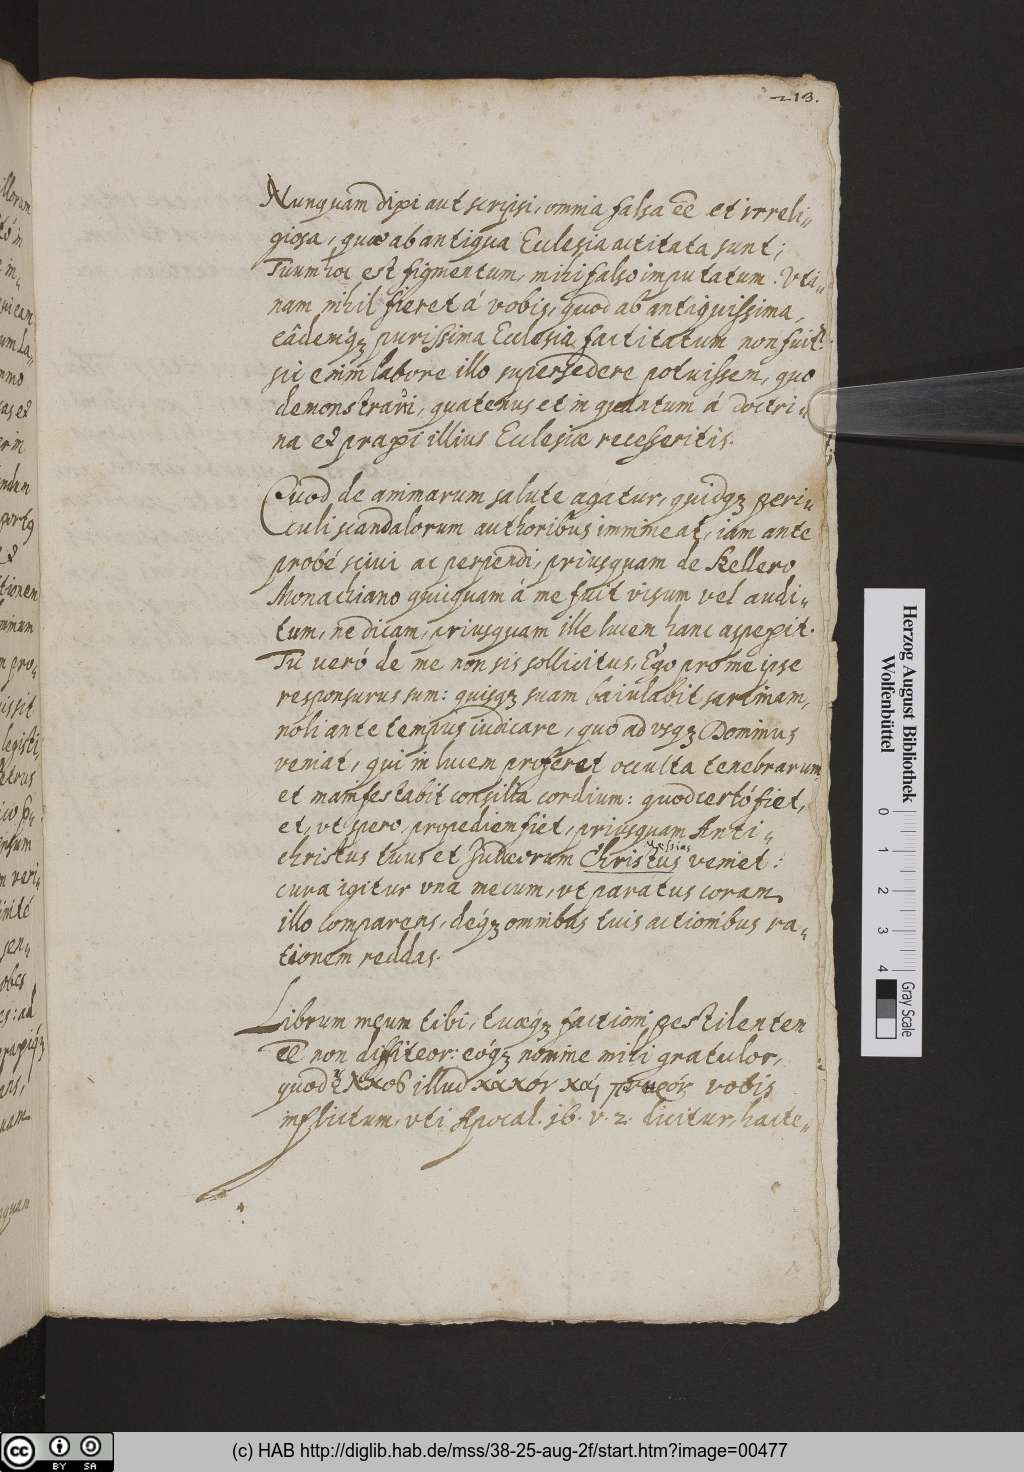 213.
Nunquam dixi aut scripsi, omnia falsa eẽ et irreli„
giosa, quæ ab antiqua Ecclesia actitata sunt;
Tuum hoc est figmentum, mihi falso imputatum. Vti„
nam nihil fieret á vobis, quod ab antiquissima,
eâdemq́ꝫ purissima Ecclesia factitatum non fuit:
sic enim labore illo supersedere potuissem, quo
demonstravi, quatenus et in quantum á doctri„
na et praxi illius Ecclesiæ recesseritis.
Quod de animarum salute agatur, quidqꝫ peri„
culi scandalorum authoribus immineat, iam ante
probé scivi ac perpendi, priusquam de Kellero
Monachiano quicquam á me fuit visum vel audi„
tum, ne dicam, priusquam ille lucem hanc aspexit.
Tu veró de me non sis sollicitus, Ego pro me ipse
responsurus sum: quisqꝫ suam baiulabit sarcinam,
noli ante tempus iudicare, quoad vsqꝫ Dominus
veniat, qui in lucem proferet occulta tenebrarum
et manifestabit consilia cordium: quod certó fiet,
et, vt spero, propediem fiet, priusquam Anti„
christus tuus et Judæorum Christus veniet:
Messias
cura igitur vna mecum, vt paratus coram
illo compareas, deq́ꝫ omnibus tuis actionibus ra„
tionem reddas.
Librum meum tibi, tuæq́ꝫ factioni pestilentem
eẽ non diffiteor: eóqꝫ nomine mihi gratulor,
quod ἕλκος illud κακόν καὶ πονηρόν vobis
inflictum, vti Apocal. 16. v. 2. dicitur, hacte„
Herzog August Bibliothek
Wolfenbüttel
0 1 2 3 4
Gray Scale
cc BY SA
(c) HAB http://diglib.hab.de/mss/38-25-aug-2f/start.htm?image=00477